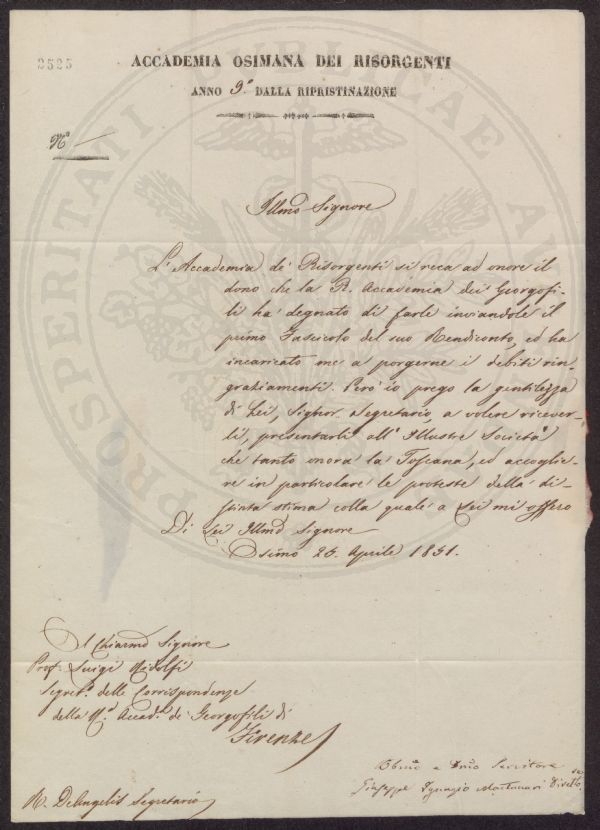 2525
ACCADEMIA OSIMANA DEI RISORGENTI
ANNO 9.° DALLA RIPRISTINAZIONE
N.°
Illmo Signore
L'Accademia de' Risorgenti si reca ad onore il
dono che la R. Accademia dei Georgofi-
li ha degnato di farle inviandole il
primo Fascicolo del suo Rendiconto, ed ha
incaricato me a porgerne i debiti rin-
graziamenti. Però io prego la gentilezza
di Lei, Signor Segretario, a volere ricever-
li, presentarli all'Illustre Società
che tanto onora la Toscana, ed accoglie-
re in particolare le proteste della di-
stinta stima colla quale a Lei mi offero
Di Lei Illmo Signore
Osimo 25. Aprile 1851.
Al Chiarmo Signore
Prof. Luigi Ridolfi
Segret.° delle Corrispondenze
della R.a Accad.a de' Georgofili di
Firenze
Obmo e Dmo Servitore
Giuseppe Ignazio
R. DeAngelis Segretario
PROSPERITATI PUBLICAE AUGENDAE